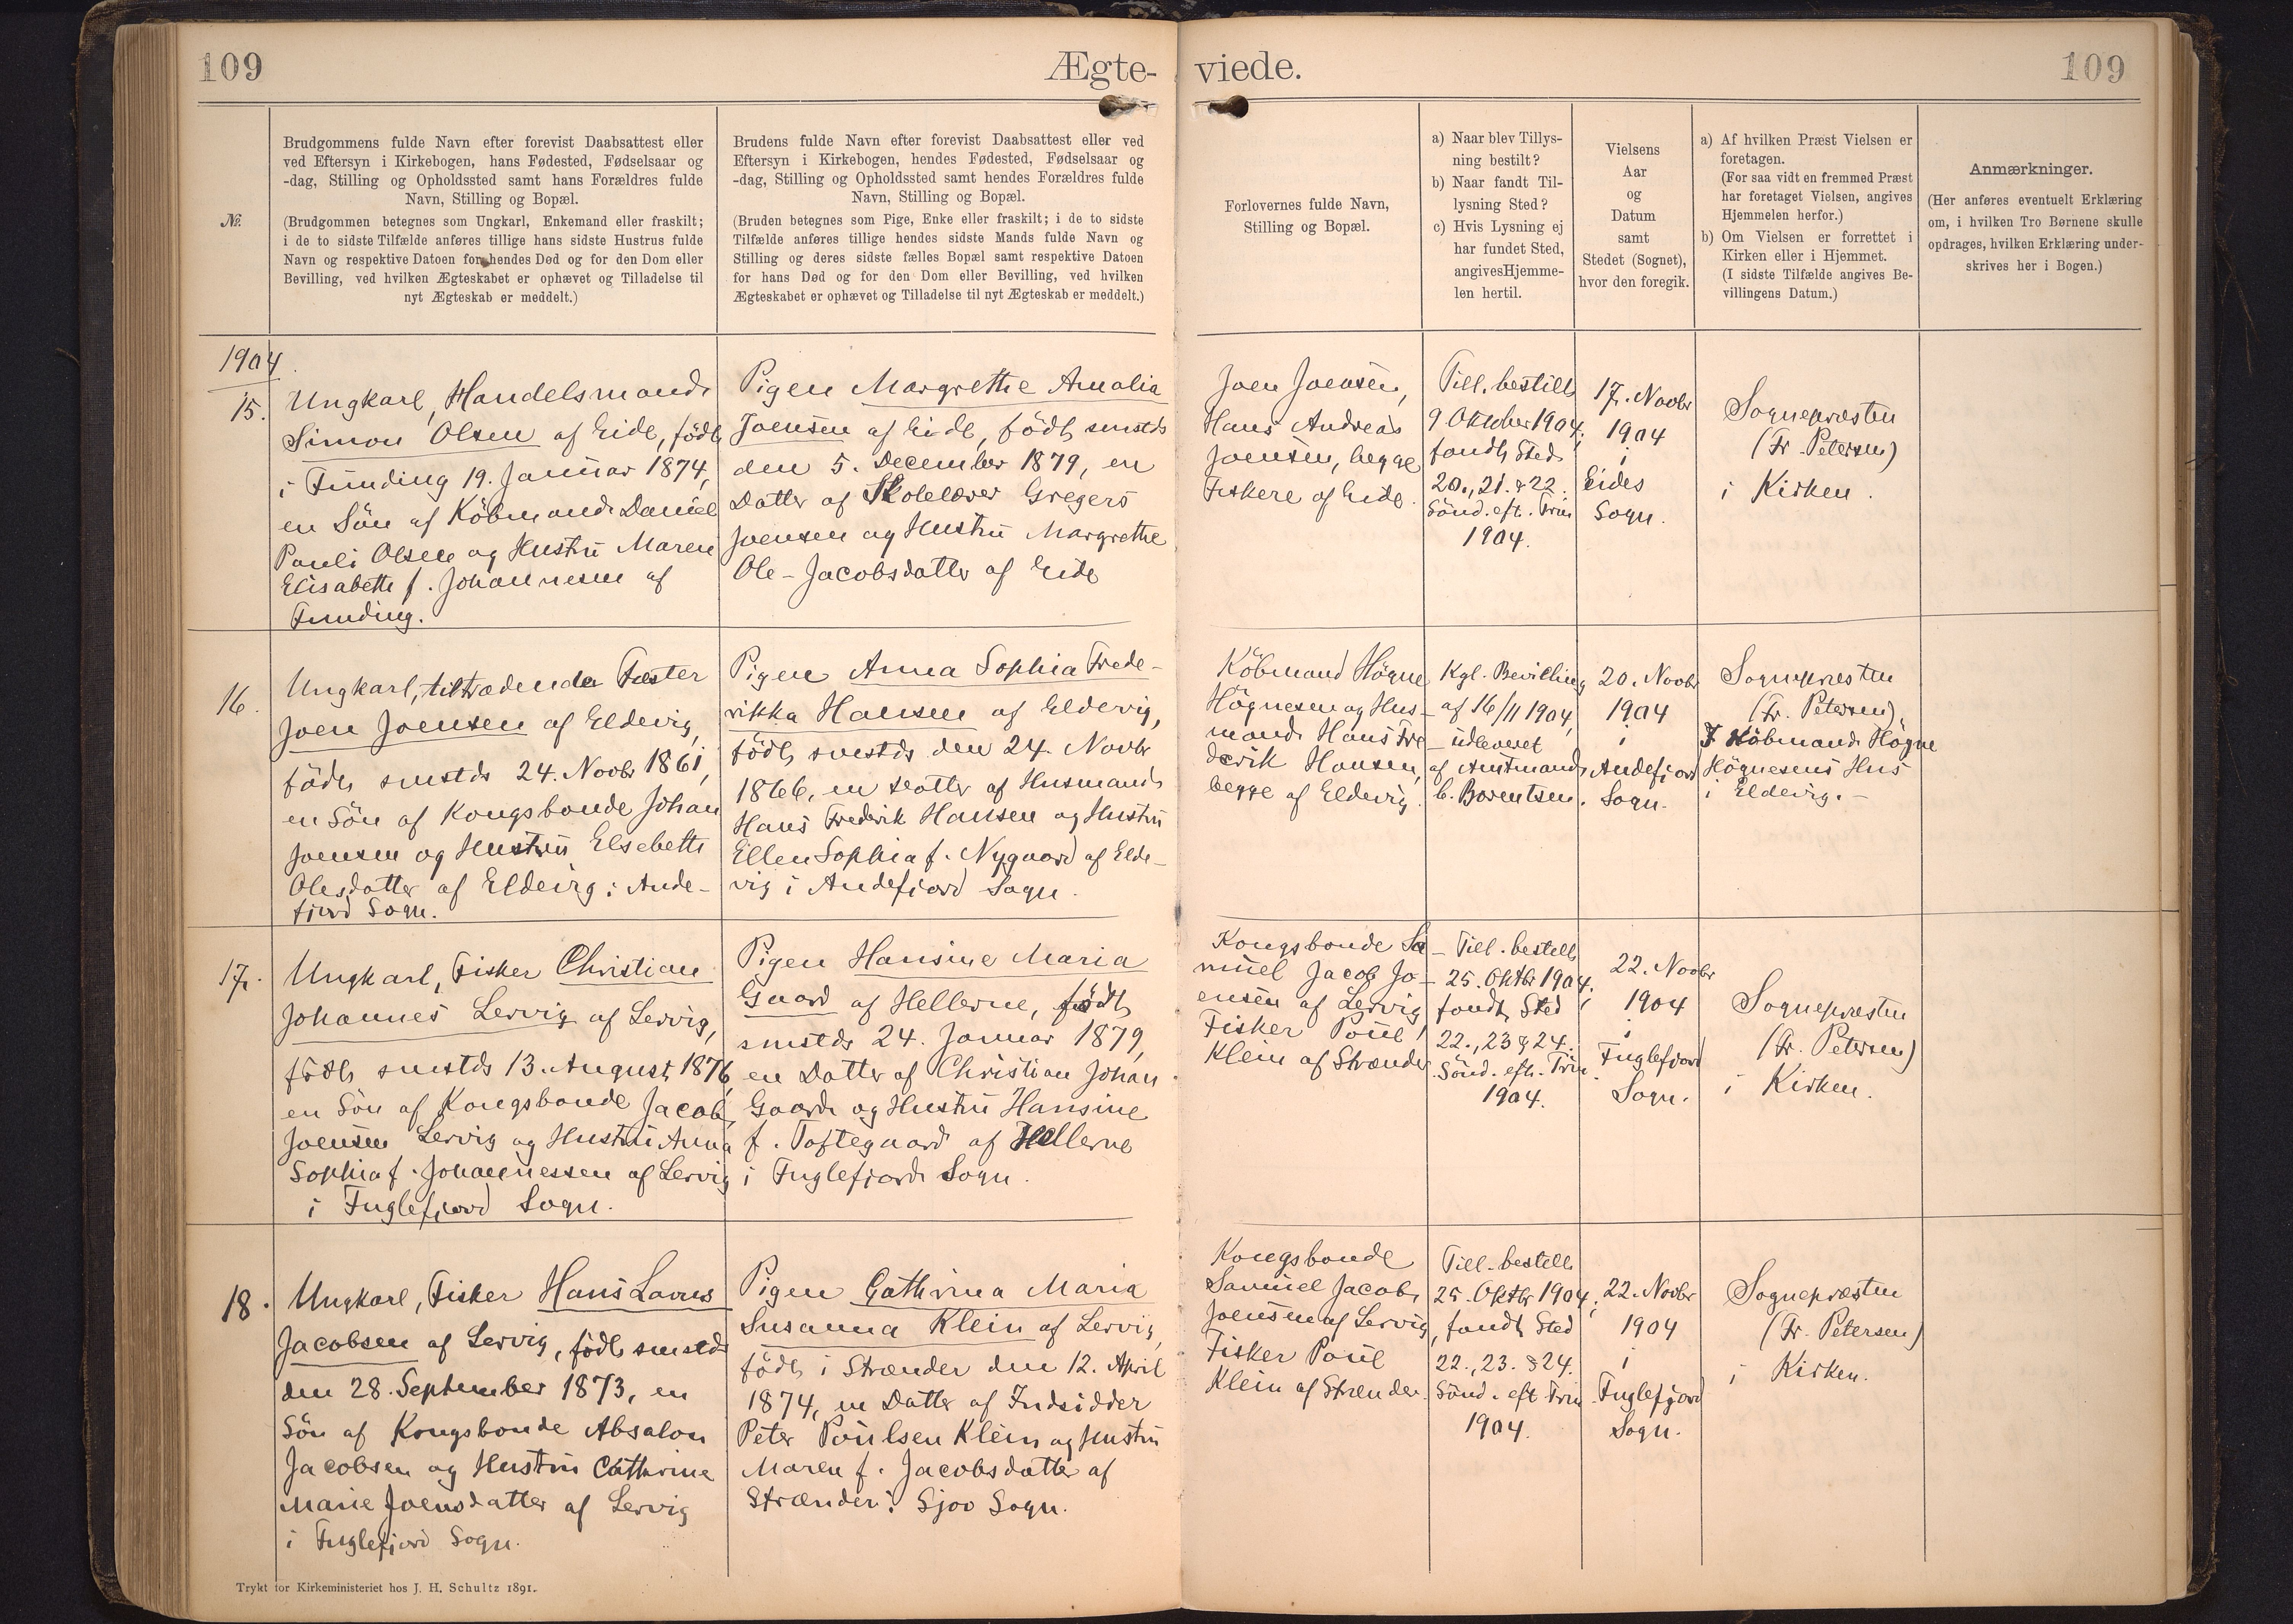 109
Ægte-
viede.
109
№.
Brudgommens fulde Navn efter forevist Daabsattest eller
ved Eftersyn i Kirkebogen, hans Fødested, Fødselsaar og
-dag, Stilling og Opholdssted samt hans Forældres fulde
Navn, Stilling og Bopæl.
(Brudgommen betegnes som Ungkarl, Enkemand eller fraskilt;
i de to sidste Tilfælde anføres tillige hans sidste Hustrus fulde
Navn og respektive Datoen for hendes Død og for den Dom eller
Bevilling, ved hvilken Ægteskabet er ophævet og Tilladelse til
nyt Ægteskab er meddelt.)
Brudens fulde Navn efter forevist Daabsattest eller ved
Eftersyn i Kirkebogen, hendes Fødested, Fødselsaar og
-dag, Stilling og Opholdssted samt hendes Forældres fulde
Navn, Stilling og Bopæl.
(Bruden betegnes som Pige, Enke eller fraskilt; i de to sidste
Tilfælde anføres tillige hendes sidste Mands fulde Navn og
Stilling og deres sidste fælles Bopæl samt respektive Datoen
for hans Død og for den Dom eller Bevilling, ved hvilken
Ægteskabet er ophævet og Tilladelse til nyt Ægteskab er meddelt.)
Forlovernes fulde Navn,
Stilling og Bopæl.
a) Naar blev Tillys-
ning bestilt?
b) Naar fandt Til-
lysning Sted?
c) Hvis Lysning ej
har fundet Sted,
angives Hjemme-
len hertil.
Vielsens
Aar
og
Datum
samt
Stedet (Sognet),
hvor den foregik.
a) Af hvilken Præst Vielsen er
foretagen.
(For saa vidt en fremmed Præst
har foretaget Vielsen, angives
Hjemmelen herfor.)
b) Om Vielsen er forrettet i
Kirken eller i Hjemmet.
(I sidste Tilfælde angives Be-
villingens Datum.)
Anmærkninger.
(Her anføres eventuelt Erklæring
om, i hvilken Tro Børnene skulle
opdrages, hvilken Erklæring under-
skrives her i Bogen.)
1904
15.
Ungkarl, Handelsmand
Simon Olsen af Eide, födt
i Funding 19. Januar 1874,
en Sön af Köbmand Daniel
Pauli Olsen og Hustru Maren
Elisabeth f. Johannesen af
Funding.
Pigen Margrethe Amalia
Joensen af Eide, födt smstds
den 5. December 1879, en
Datter af Skolelærer Gregers
Joensen og Hustru Margrethe
Ole-Jacobsdatter af Eide
Joen Joensen,
Hans Andreas
Joensen, begge
Fiskere af Eide.
Till. bestilt
9 Oktober 1904;
fandt Sted
20., 21. & 22.
Sönd. eft. Trin
1904.
17. Novbr
1904
i
Eides
Sogn.
Sognepræsten
(Fr. Petersen)
i Kirken.
16.
Ungkarl, tiltrædende Fæster
Joen Joensen af Eldevig,
födt smstds 24. Novbr 1861,
en Sön af Kongsbonde Johan
Joensen og Hustru Elsebeth
Olesdatter af Eldevig i Ande-
fjord Sogn.
Pigen Anna Sophia Frede-
rikka Hansen af Eldevig,
födt smstds den 24. Novbr
1866, en Datter af Husmand
Hans Frederik Hansen og Hustru
Ellen Sophia f. Nygaard af Elde-
vig i Andefjord Sogn.
Köbmand Högne
Högnesen og Hus-
mand Hans Fre-
derik Hansen,
begge af Eldevig.
Kgl. Bevilling
af 16/11 1904,
udleveret
af Amtmand
C. Bærentsen.
20. Novbr
1904
i
Andefjord
Sogn.
Sognepræsten
(Fr. Petersen),
I Köbmand Högne
Högnesens Hus
i Eldevig.
17.
Ungkarl, Fisker Christian
Johannes Lervig af Lervig,
födt smstds 13. August 1876,
en Sön af Kongsbonde Jacob
Joensen Lervig og Hustru Anna
Sophia f. Johannessen af Lervig
i Fuglefjord Sogn.
Pigen Hansine Maria
Gaard af Hellerne, födt
smstds 24. Januar 1879,
en Datter af Christian Johan
Gaard og Hustru Hansine
f. Toftegaard af Hellerne
i Fuglefjord Sogn.
Kongsbonde Sa-
muel Jacob Jo-
ensen af Lervig,
Fisker Poul
Klein af Strænder
Till. bestilt
25. Oktbr 1904;
fandt Sted
22., 23 & 24.
Sönd. eft. Trin
1904.
22. Novbr
1904
i
Fuglefjord
Sogn.
Sognepræsten
(Fr. Petersen)
i Kirken.
18.
Ungkarl, Fisker Hans Laurus
Jacobsen af Lervig, födt smstds
den 28. September 1873, en
Sön af Kongsbonde Absalon
Jacobsen og Hustru Cathrine
Marie Joensdatter af Lervig
i Fuglefjord Sogn.
Pigen Cathrina Maria
Susanna Klein af Lervig,
födt i Strænder den 12. April
1874, en Datter af Indsidder
Peter Poulsen Klein og Hustru
Maren f. Jacobsdatter af
Strænder i Sjov Sogn.
Kongsbonde
Samuel Jacob
Joensen af Lervig,
Fisker Poul
Klein af Strænder.
Till. bestilt
25. Oktbr 1904;
fandt Sted
22., 23. & 24.
Sönd. eft Trin
1904.
22. Novbr
1904
i
Fuglefjord
Sogn.
Sognepræsten
(Fr. Petersen)
i Kirken.
Trykt for Kirkeministeriet hos J. H. Schultz 1891.